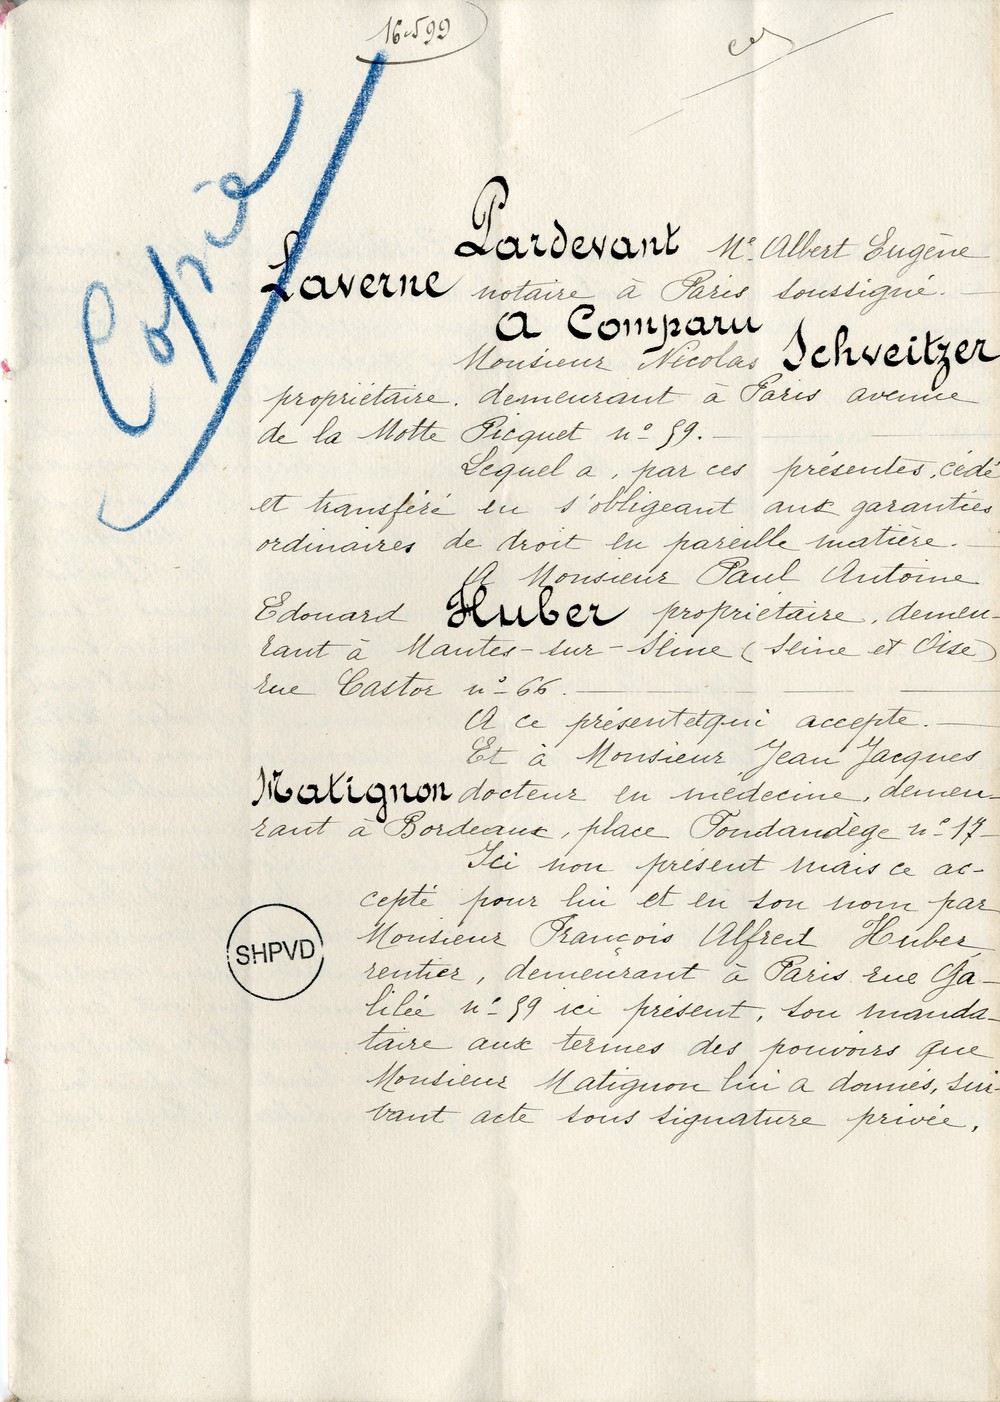 16599
Copie
Pardevant Me. Albert Eugène
Laverne notaire à Paris soussigné.
A Comparu
Monsieur Nicolas Schveitzer
propriétaire. demeurant à Paris avenue
de la Motte Picquet n° 59.
Lequel a, par ces présentes, cédé
et transféré en s'obligeant aux garanties
ordinaires de droit en pareille matière.
A Monsieur Paul Antoine
Edouard Huber propriétaire, demeu-
rant à Mantes-sur-Seine (Seine et Oise)
rue Castor n° 66.
A ce présent et qui accepte.
Et à Monsieur Jean Jacques
Matignon docteur en médecine, demeu-
rant à Bordeaux, place Tondandège n° 17
Ici non présent mais ce ac-
cepté pour lui et en son nom par
Monsieur François Alfred Huber,
rentier, demeurant à Paris rue Ga-
lilée n° 59 ici présent, son manda-
taire aux termes des pouvoirs que
Monsieur Matignon lui a donnés, sui-
vant acte sous signature privée,
SHPVD